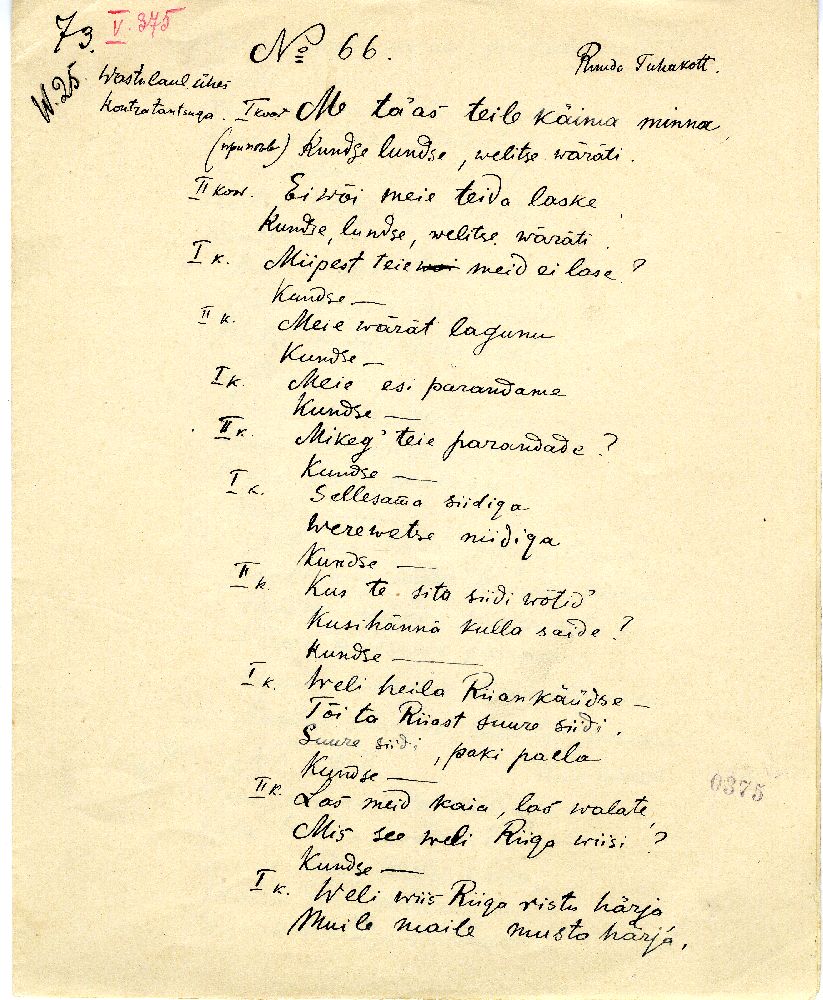 73. V. 375
W. 25.
№ 66.
Ruuda Tuhakott.
Wastslaul ühes
kontratantsuga.
I koor Me tä'äs teile käima minna,
(припѣвъ) Kundse lundse, welitse wäräti.
II koor. Ei wõi meie teida laske
Kundse, lundse, welitse wäräti.
I k. Miipest teie meid ei lase?
Kundse —
II k. Meie wärät lagunu
Kundse —
I k. Meie esi parandame
Kundse —
II k. Mikeg' teie parandade?
Kundse —
I k. Sellesama siidiga
Werewetse niidiga
Kundse —
II k. Kus te sita siidi wõtid'
Kusihännä kulla saide?
Kundse —
I k. Weli heila Riian käüdse —
Tõi ta Riiast suure siidi,
Suure siidi, paki paela
Kundse —
II k. Las meid kaia, las walate,
Mis see weli Riiga wiisi?
Kundse —
I k. Weli wiis Riiga ristu härja
Muile maile musta härjä,
0375